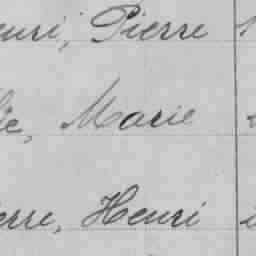 enri, Pierre
ie, Marie
erre, Henri